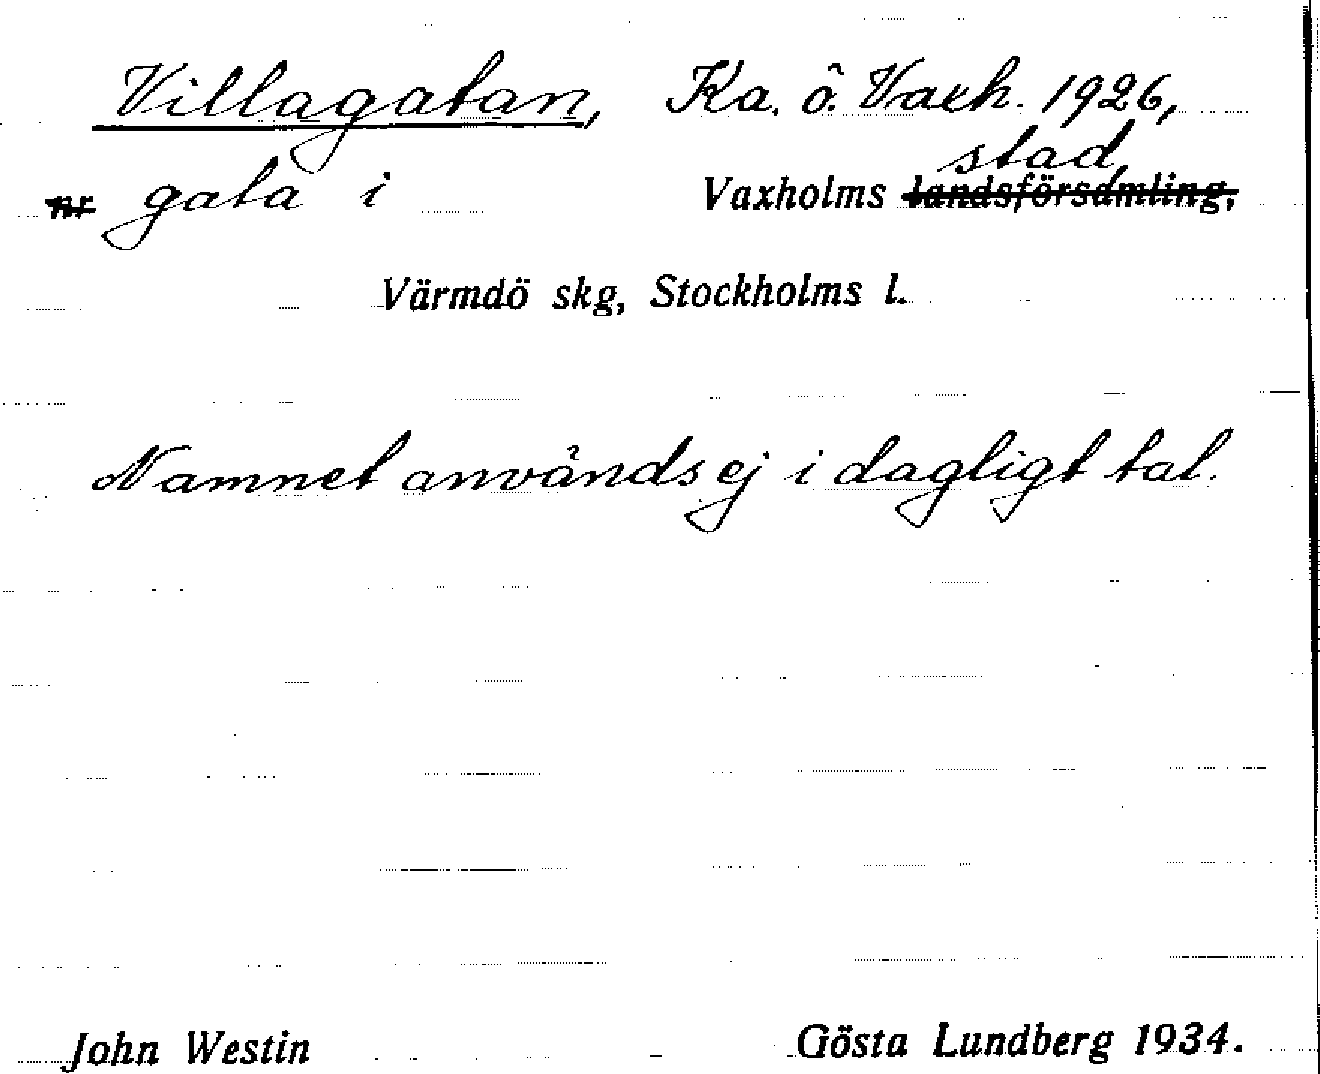 Villagatan, Ka. ö. Vaxh. 1926,
stad,
nr gata i Vaxholms landsförsamling,
Värmdö skg, Stockholms l.
Namnet används ej i dagligt tal.
John Westin Gösta Lundberg 1934.